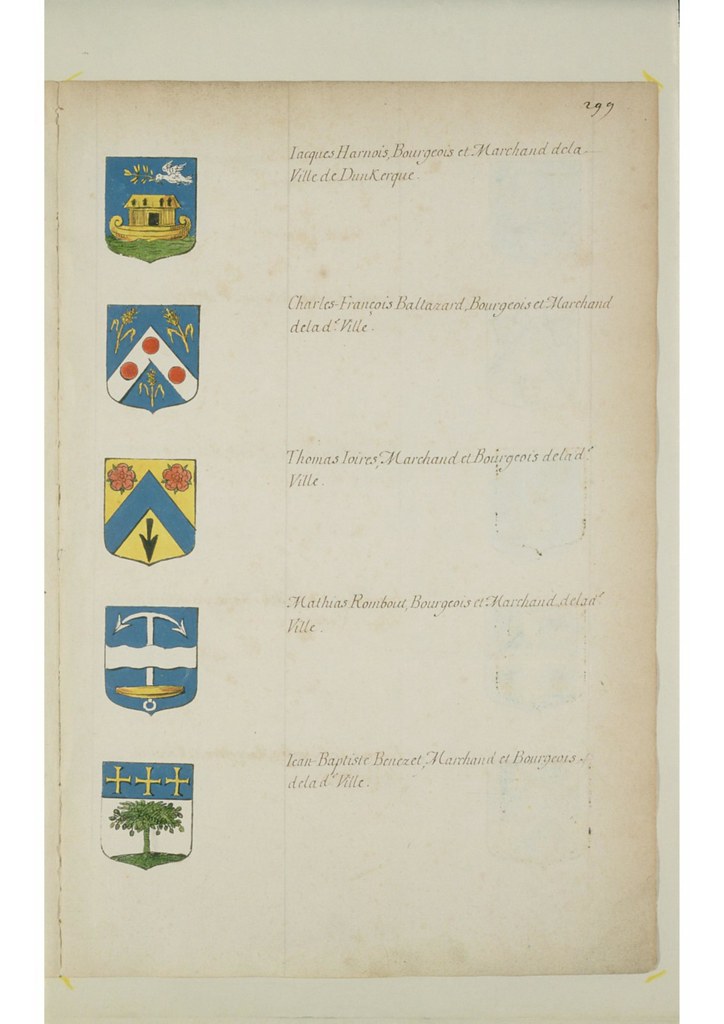 299
Iacques Harnois, Bourgeois et Marchand dela
Ville de DunKerque.
Charles-François Baltazard, Bourgeois et Marchand
delad.e Ville.
Thomas Ioires, Marchand et Bourgeois delad.e
Ville.
Mathias Rombout, Bourgeois et Marchand delad.e
Ville.
Iean-Baptiste Benezet, Marchand et Bourgeois
delad.e Ville.